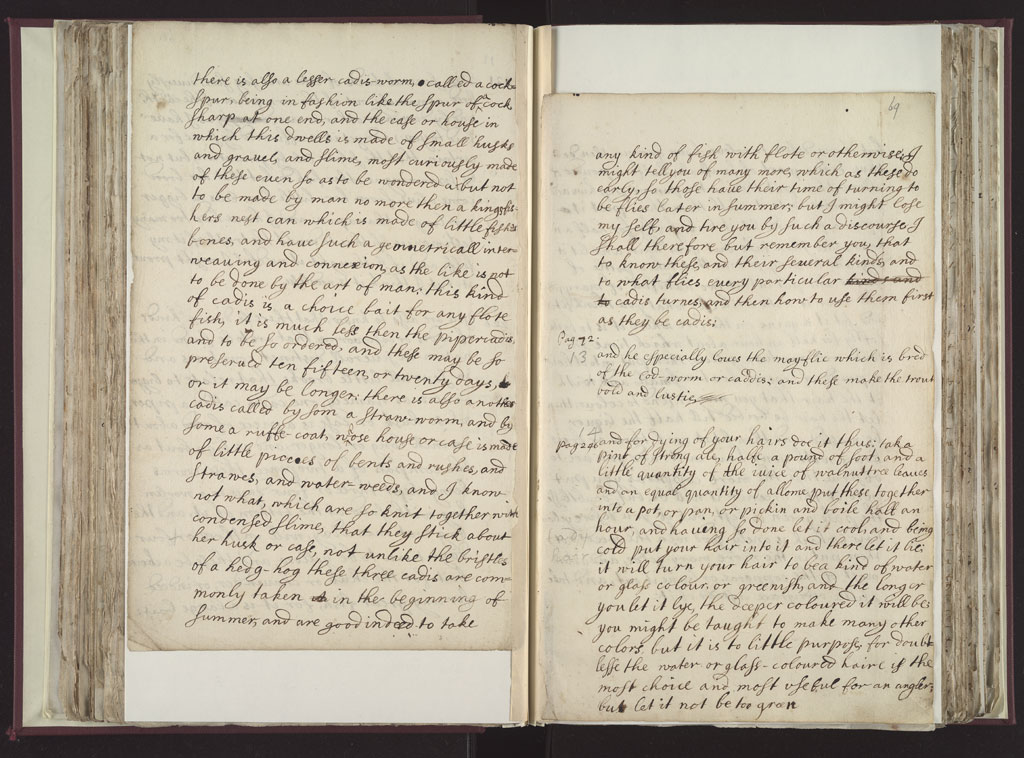 there is also a lesser cadis-worm, called a cock=
spur, being in fashion like the spur of a cock
sharp at one end, and the case or house in
which this dwells is made of small husks
and gravel, and slime, most curiously made
of these even so as to be wondered at but not
to be made by man no more then a kingfis=
hers nest can which is made of little fishes
bones, and have such a geometricall inter=
weaving and connexion, as the like is not
to be done by the art of man: this kind
of cadis is a choice bait for any flote
fish, it is much less then the pipercadis,
and to be so ordered, and these may be so
preserued ten fifteen, or twenty days,
or it may be longer: there is also another
cadis called by som a straw-worm, and by
some a ruffe-coat, whose house or case is made
of little pieces of bents and rushes, and
strawes, and water-weeds, and I know
not what, which are so knit together with
condensed slime, that they stick about
her husk or case, not unlike the bristles
of a hedg-hog these three cadis are com=
monly taken in the beginning of
summer, and are good indeed to take
69
any kind of fish with flote or otherwise, I
might tell you of many more, which as these do
early, so those haue their time of turning to
be flies later in summer; but I might lose
my self, and tire you by such a discourse, I
shall therefore but remember you, that
to know these, and their several kinds, and
to what flies every particular kinds and
to cadis turnes, and then how to use them first
as they be cadis:
Pag 92:
13 and he especially loues the may-flie which is bred
of the cod-worm or caddis: and these make the trout
bold and lustie
14
pag 246 and for dying of your hairs doe it thus: take a
pint of strong ale, halfe a pound of soot, and a
little quantity of the iuice of walnuttree leaues
and an equal quantity of allome put these together
into a pot, or pan, or pickin and boile halfe an
hour, and hauing so done let it cool, and being
cold put your hair into it and there let it lie;
it will turn your hair to be a kind of water
or glass colour, or greenish, and the longer
you let it lye, the deeper coloured it will be:
you might be taught to make many other
colors but it is to little purpose, for doubt=
lesse the water-or glass-coloured haire is the
most choice and most usefull for an angler,
but let it not be too green